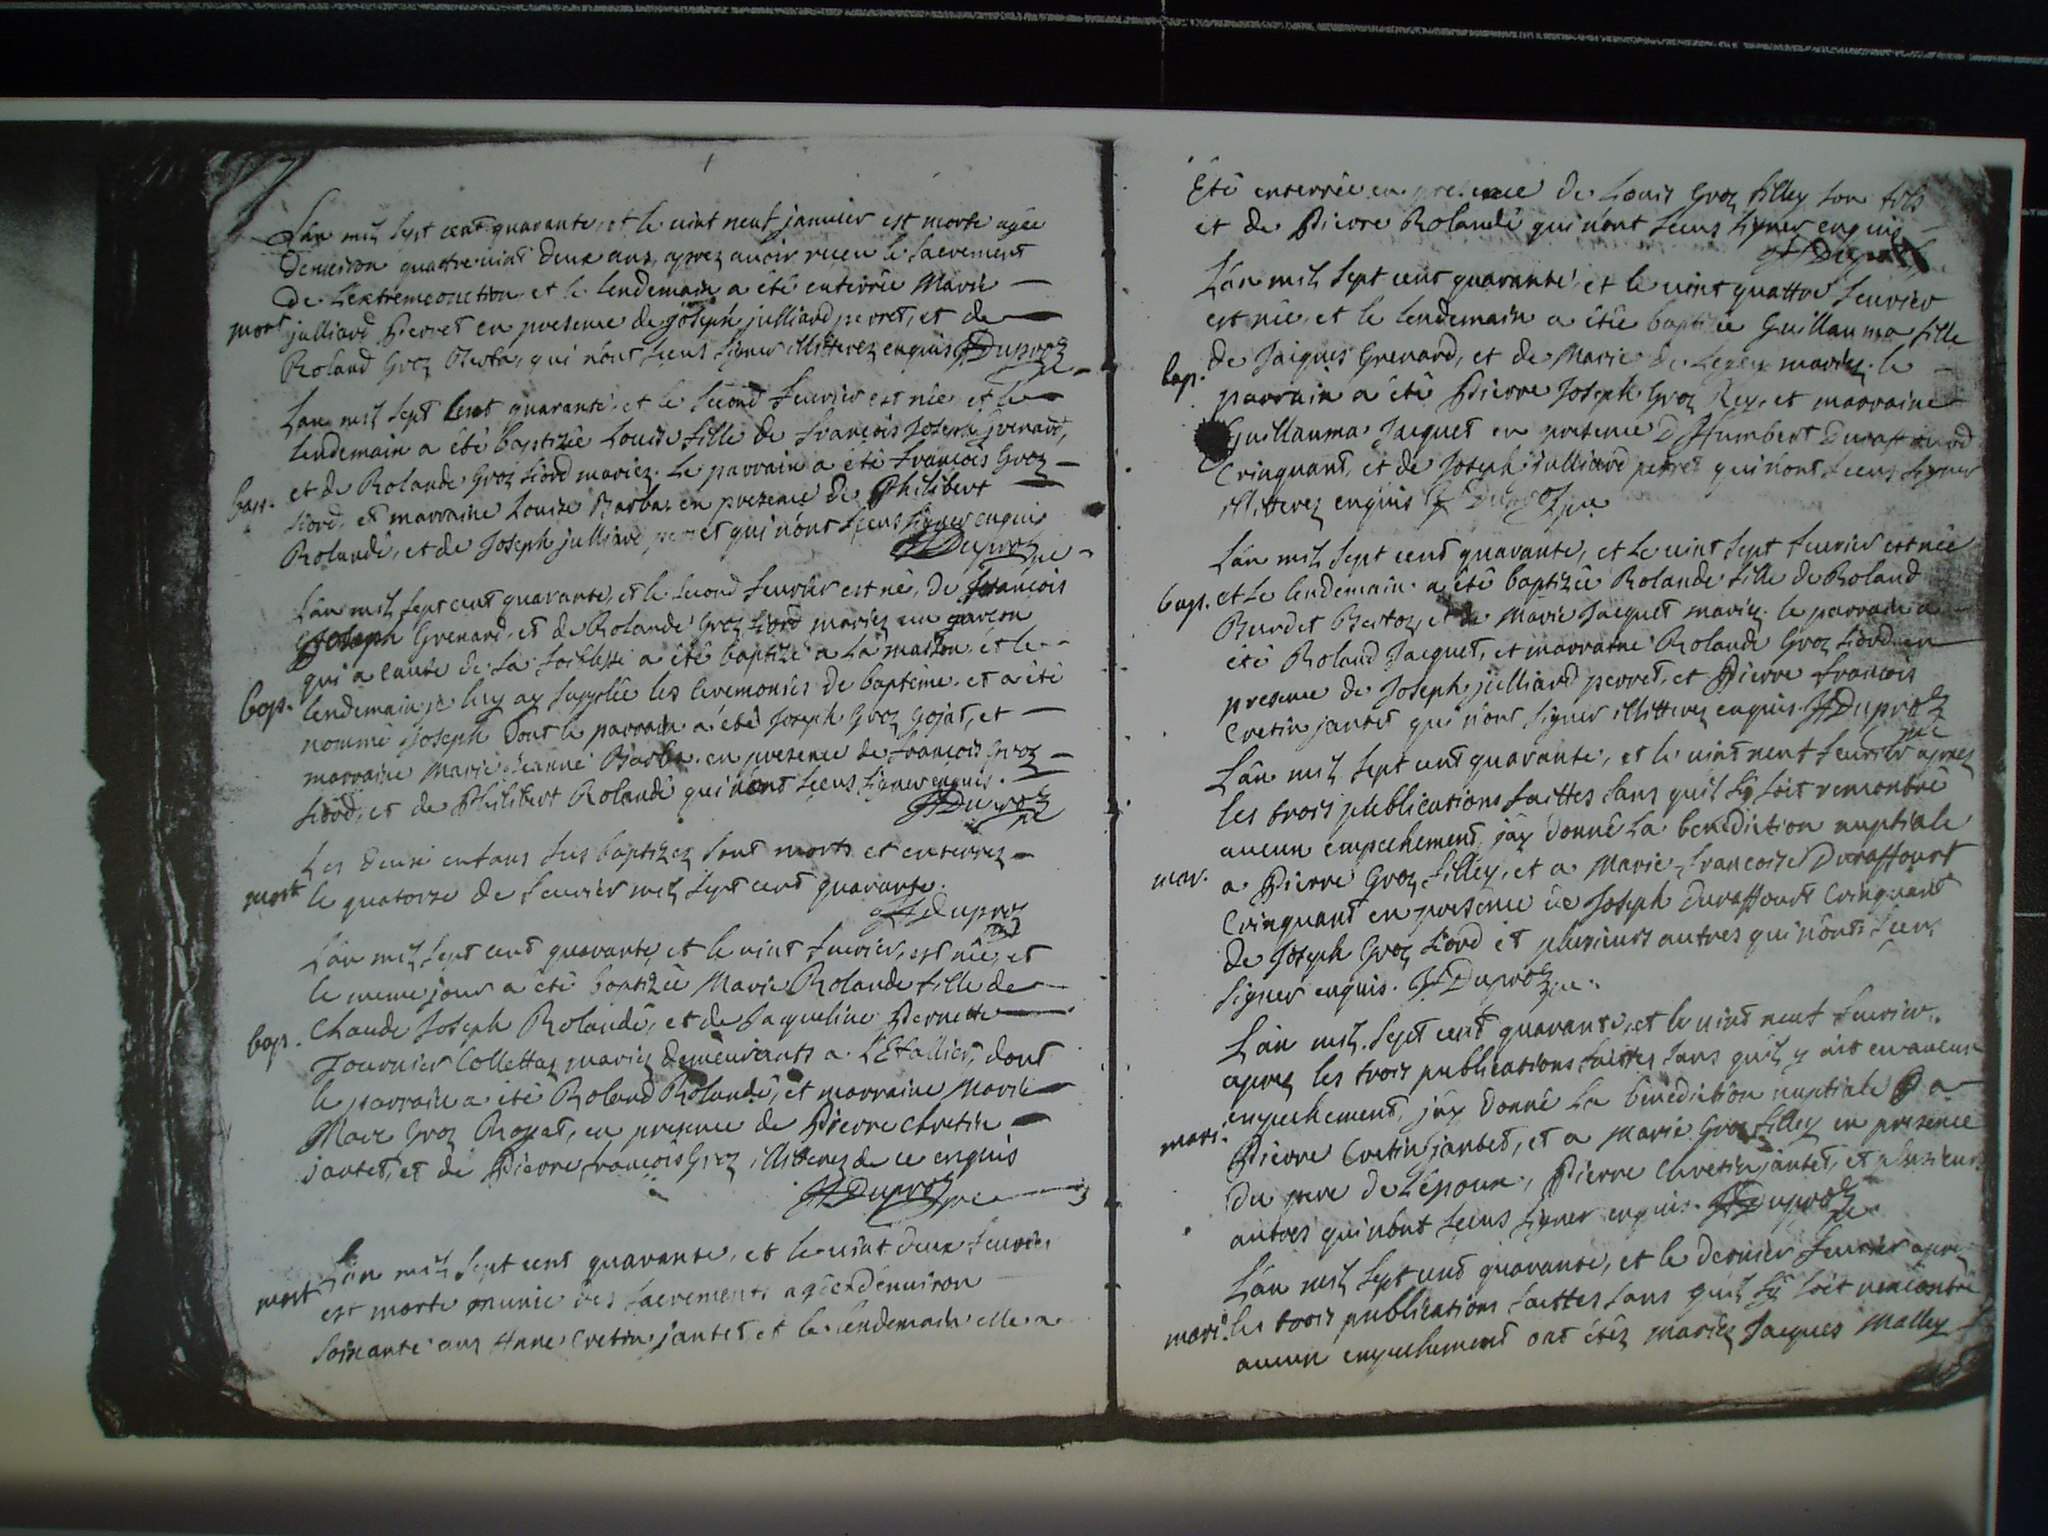 L'an mil sept cent quarante, et le vint neuf janvier est morte agée
denviron quattre vint deux ans, aprez avoir receu le sacrement
de l'extrémeonction, et le lendemain a été enterrée Marie
mort julliard Perret en presence de joseph julliard perret, et de
Roland Groz Berba, qui n'ont sceus signer illitterez enquis JDuproz
L'an mil sept cent quarante, et le second feuvrier est née et le
lendemain a été baptizée Louise fille de françois Joseph grenard,
bap. et de Rolande Groz liord mariez. Le parrain a été françois Groz
liord, et marraine Louise Barba, en presence de Philibert
Rolandé, et de Joseph julliard perret qui n'ont sceus signer enquis
JDuproz
L'an mil sept cent quarante, et le second feuvrier est né, de françois
Joseph Grenard, et de Rolande Groz liord mariez un garcon
qui a cause de sa foiblesse a été baptizé a la maison, et le
bap. lendemain je luy ay supplée les ceremonies de baptéme, et a été
nommé Joseph dont le parrain a été Joseph Groz Gojat, et
marraine Marie Jeanne Barba, en presence de françois Groz
liord, et de Philibert Rolandé qui n'ont sceus signer enquis.
JDuproz
Les deux enfans sus baptizez sont morts et enterrez
mort le quatorze de feuvrier mil sept cent quarante.
JDuproz
L'an mil sept cent quarante, et le vint feuvrier, est née, et
le meme jour a été baptizée Marie Rolande fille de
bap. Claude Joseph Rolandé, et de Jaqueline Pernette
Fournier Collettaz mariez demeurants a L'Etallier, dont
le parrain a été Roland Rolandé, et marraine Marie
Marc Groz Royat, en presence de Pierre Cretin
jantet, et de Pierre françois Groz illitterez de ce enquis
JDuproz
L'an mil sept cent quarante, et le vint deux feuvrier
mort est morte munie des sacrements agée d'environ
soixante ans Anne Cretin jantet et le lendemain elle a
Eté enterrée en presence de Louis Groz filley son fils
et de Pierre Rolandé qui n'ont sceus signer enquis
JDuproz
L'an mil sept cent quarante, et le vint quattre feuvrier
est née, et le lendemain a étée baptizée Guillauma fille
de Jaques Grenard, et de Marie mariez. le
bap. parrain a été Pierre Joseph Groz Rey, et marraine
Guillauma Jaquet en presence d'Humbert
Crinquant, et de Joseph julliard perret qui n'ont sceus signer
illitterez enquis JDuproz
L'an mil sept cent quarante, et le vint sept feuvrier est née
bap. et le lendemain a été baptizée Rolande fille de Roland
Burdet Bertoz, et de Marie Jaquet mariez. le parrain a
été Roland Jaquet, et marraine Rolande Groz liord en
presence de Joseph julliard perret, et Pierre françois
Cretin jantet qui n'ont signer illitterez enquis JDuproz
L'an mil sept cent quarante, et le vint neuf feuvrier aprez
les trois publications faittes sans qu'il sy soit remontré
aucun empechement, j'ay donné la benediction nuptiale
mar. a Pierre Groz filley, et a Marie françoise Duraffourt
Crinquant en presence de Joseph Duraffourt Crinquant
de Joseph Groz liord et plusieurs autres qui n'onts sceus
signer enquis. JDuproz
L'an mil sept cent quarante, et le vint neuf feuvrier
aprez les trois publications faittes sans qu'il y aie eu aucun
empechement, j'ay donné la bénédiction nuptiale a
mari. Pierre Cretin jantet, et a Marie Groz filley en presence
du pere de l'époux, Pierre Cretin jantet, et plusieurs
autres qui n'ont sceus signer enquis. JDuproz
L'an mil sept cent quarante, et le dernier feuvrier aprez
mari. les trois publications faittes sans qu'il sy soit rencontré
aucun empechement ont étéz mariez Jacques Malley